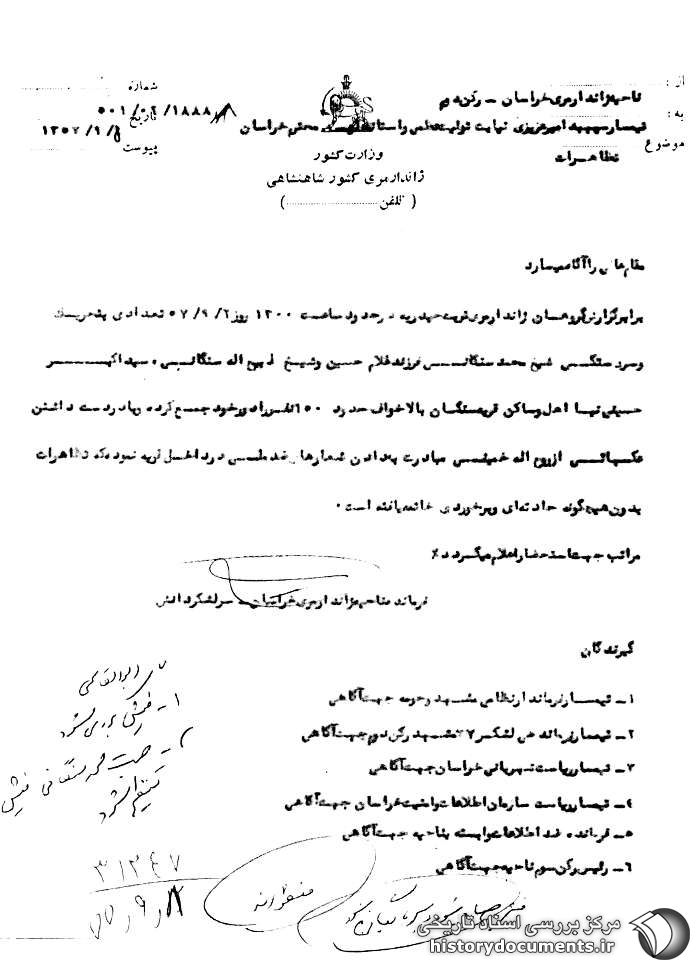 از : ناحیه ژاندارمری خراسان – رکن دوم
به : تیمسار سپهبد امیر عزیزی نیابت تولیت عظمی و استاندار محترم خراسان
موضوع تظاهرات
شماره ۵۰۱/۰۲/۱۸۸۸
تاریخ ۱۳۵۷/۹/۸
پیوست
وزارت کشور
ژاندارمری کشور شاهنشاهی
( تلفن ............ )
مقام عالی را آگاه میسازد
برابر گزارش گروهان ژاندارمری تربت حیدریه در حدود ساعت ۱۳۰۰ روز ۵۷/۹/۲ تعدادی بتحریک
و سردستگی شیخ محمد سنگانی فرزند غلام حسین و شیخ ذبیح اله سنگانی ، سید اکبر
حسینی نیا اهل و ساکن قریه سنگان بالاخواف حدود ۱۵۰ نفر را دور خود جمع کرده و با در دست داشتن
عکسهائی از روح اله خمینی مبادرت بدادن شعارهای ضد ملی در داخل قریه نموده که تظاهرات
بدون هیچگونه حادثه‌ای و برخوردی خاتمه یافته است .
مراتب جهت استحضار اعلام میگردد %
فرمانده ناحیه ژاندارمری خراسان – سرلشکر دانش
گیرندگان
۱– تیمسار فرماندار نظامی مشهد و حومه جهت آگاهی
۲– تیمسار فرمانده لشکر ۷۷ مشهد رکن دوم جهت آگاهی
۳– تیمسار ریاست شهربانی خراسان جهت آگاهی
٤– تیمسار ریاست سازمان اطلاعات و امنیت خراسان جهت آگاهی
۵– فرمانده ضد اطلاعات وابسته بناحیه جهت آگاهی
۶– رئیس رکن سوم ناحیه جهت آگاهی
ابوالقاسمی
۱–
۲–
۳۱۳۴۷
۵۷/۹/۸
مرکز بررسی اسناد تاریخی
historydocuments.ir